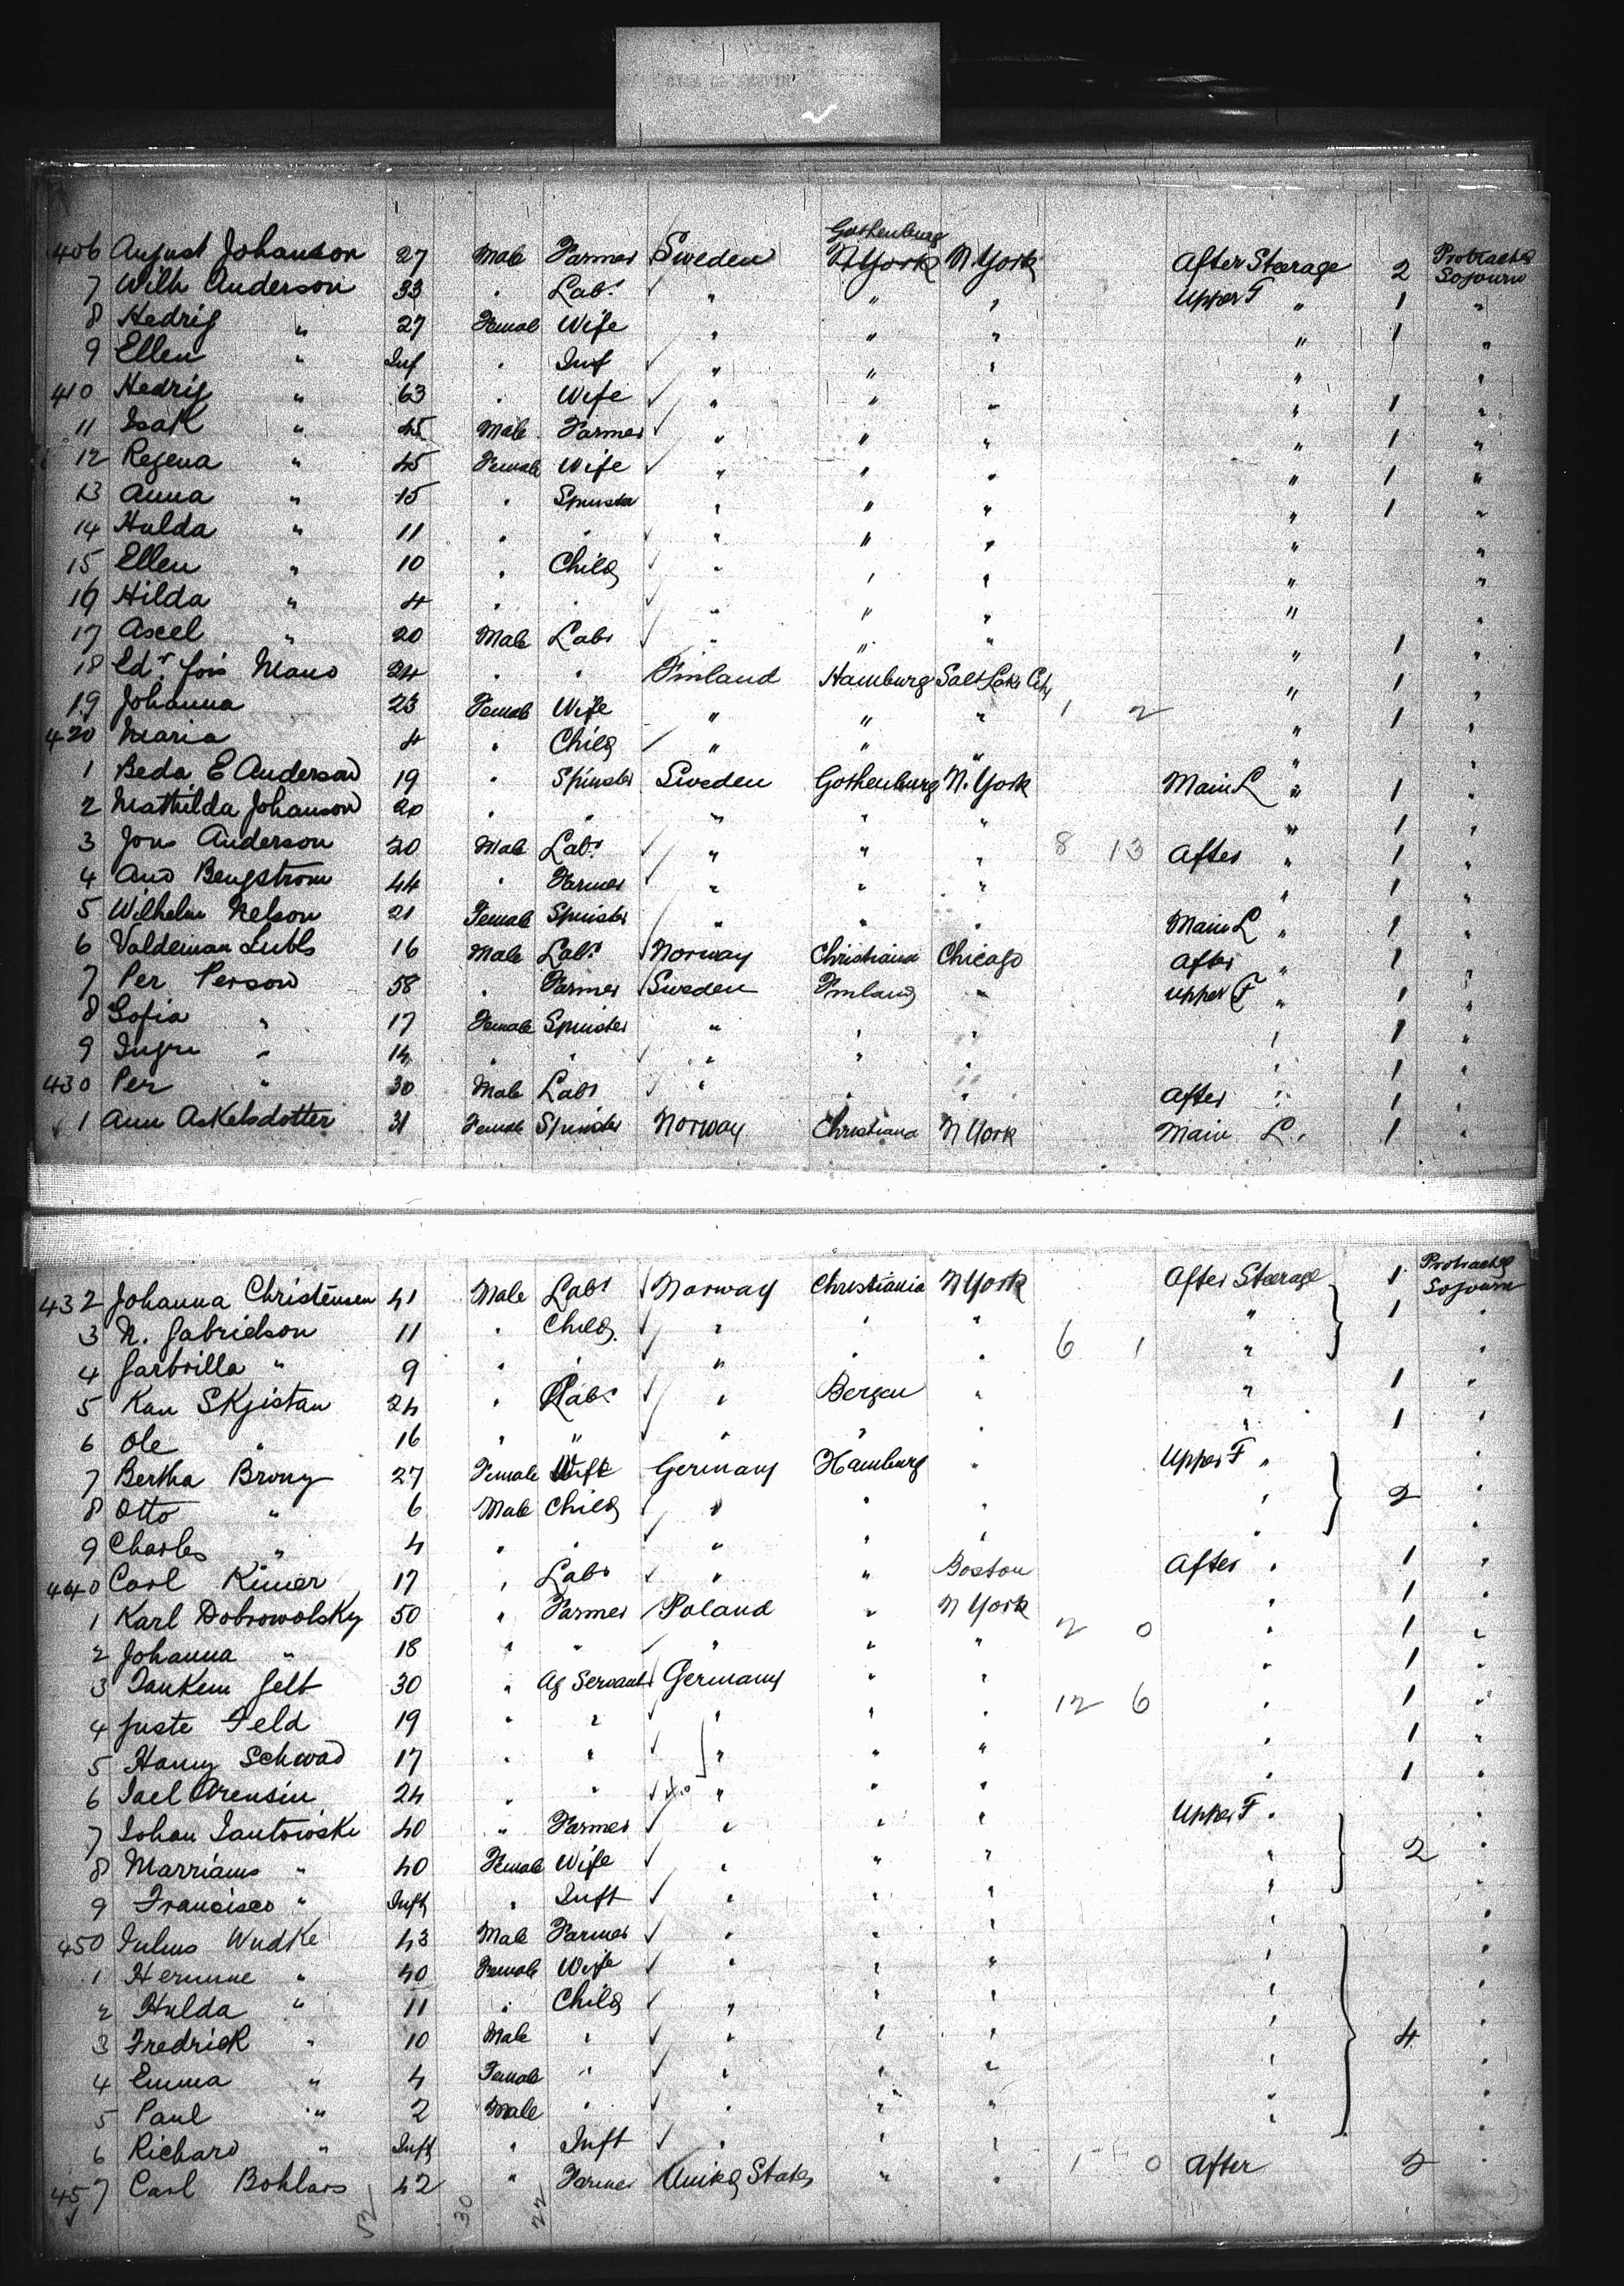 Gothenburg
406 August Johanson 27 Male Farmer Sweden N York N York After Steerage 2 Protracted Sojourn
7 Wilh Anderson 33 " Labr " " " Upper F " 1 "
8 Hedrig " 27 Female Wife " " " " 1 "
9 Ellen " Inf " Inf " " " " "
410 Hedrig " 63 " Wife " " " " 1 "
11 Isak " 45 Male Farmer " " " " 1 "
12 Regena " 45 Female Wife " " " " 1 "
13 Anna " 15 " Spinster " " " " 1 "
14 Hulda " 11 " " " " " " "
15 Ellen " 10 " Child " " " " "
16 Hilda " 4 " " " " " " "
17 Axel " 20 Male Labr " " " " 1 "
18 Mans 24 " " Finland Hamburg Salt Lake City " 1 "
19 Johanna 23 Female Wife " " " 1 2 " 1 "
420 Maria 4 " Child " " " " "
1 Beda E Anderson 19 " Spinster Sweden Gothenburg N. York Main L " 1 "
2 Mathilda Johanson 20 " " " " " " 1 "
3 Jons Anderson 20 Male Labr " " " 8 13 After " 1 "
4 And Bengstrom 44 " Farmer " " " " 1 "
5 Wilhelm Nelson 21 Female Spinster " " " Main L " 1 "
6 Valdeman Lubls 16 Male Labr Norway Christiana Chicago After " 1 "
7 Per Person 58 " Farmer Sweden Finland " Upper F " 1 "
8 Sofia " 17 Female Spinster " " " " 1 "
9 Ingri " 14 " " " " " " 1 "
430 Per " 30 Male Labr " " " After " 1 "
1 Ann Askelsdotter 31 Female Spinster Norway Christiana N York Main L. 1 "
432 Johanna Christensen 41 Male Labr Norway Christiania N York After Steerage 1 Protracted Sojourn
3 N. Gabrielson 11 " Child " " " " 1 "
4 Garbrilla " 9 " " " " " 6 1 " "
5 Kan Skjistan 24 " Labr " Bergen " " 1 "
6 Ole " 16 " " " " " " 1 "
7 Bertha Brony 27 Female Wife Germany Hamburg " Upper F " "
8 Otto " 6 Male Child " " " " 2 "
9 Charles " 4 " " " " " " "
440 Carl Kimer 17 " Labr " " Boston After " 1 "
1 Karl Dobrowolsky 50 " Farmer Poland " N York " 1 "
2 Johanna " 18 " " " " " 2 0 " 1 "
3 Jankem Gelt 30 " Ag Servant Germany " " " 1 "
4 Juste Feld 19 " " " " " 12 6 " 1 "
5 Harry Schwad 17 " " " " " " 1 "
6 Jael Arensin 24 " " " " " " 1 "
7 Johan Jantowski 40 " Farmer " " " Upper F " "
8 Marriams " 40 Female Wife " " " " 2 "
9 Francisco " Inft " Inft " " " " "
450 Julius Wudke 43 Male Farmer " " " " "
1 Hermine " 40 Female Wife " " " " "
2 Hulda " 11 " Child " " " " "
3 Fredrick " 10 Male " " " " " 4 "
4 Emma " 4 Female " " " " " "
5 Paul " 2 Male " " " " " "
6 Richard " Inft " Inft " " " "
457 Carl Bohlars 42 " Farmer United States " " 1 0 After 2 "
52 30 22